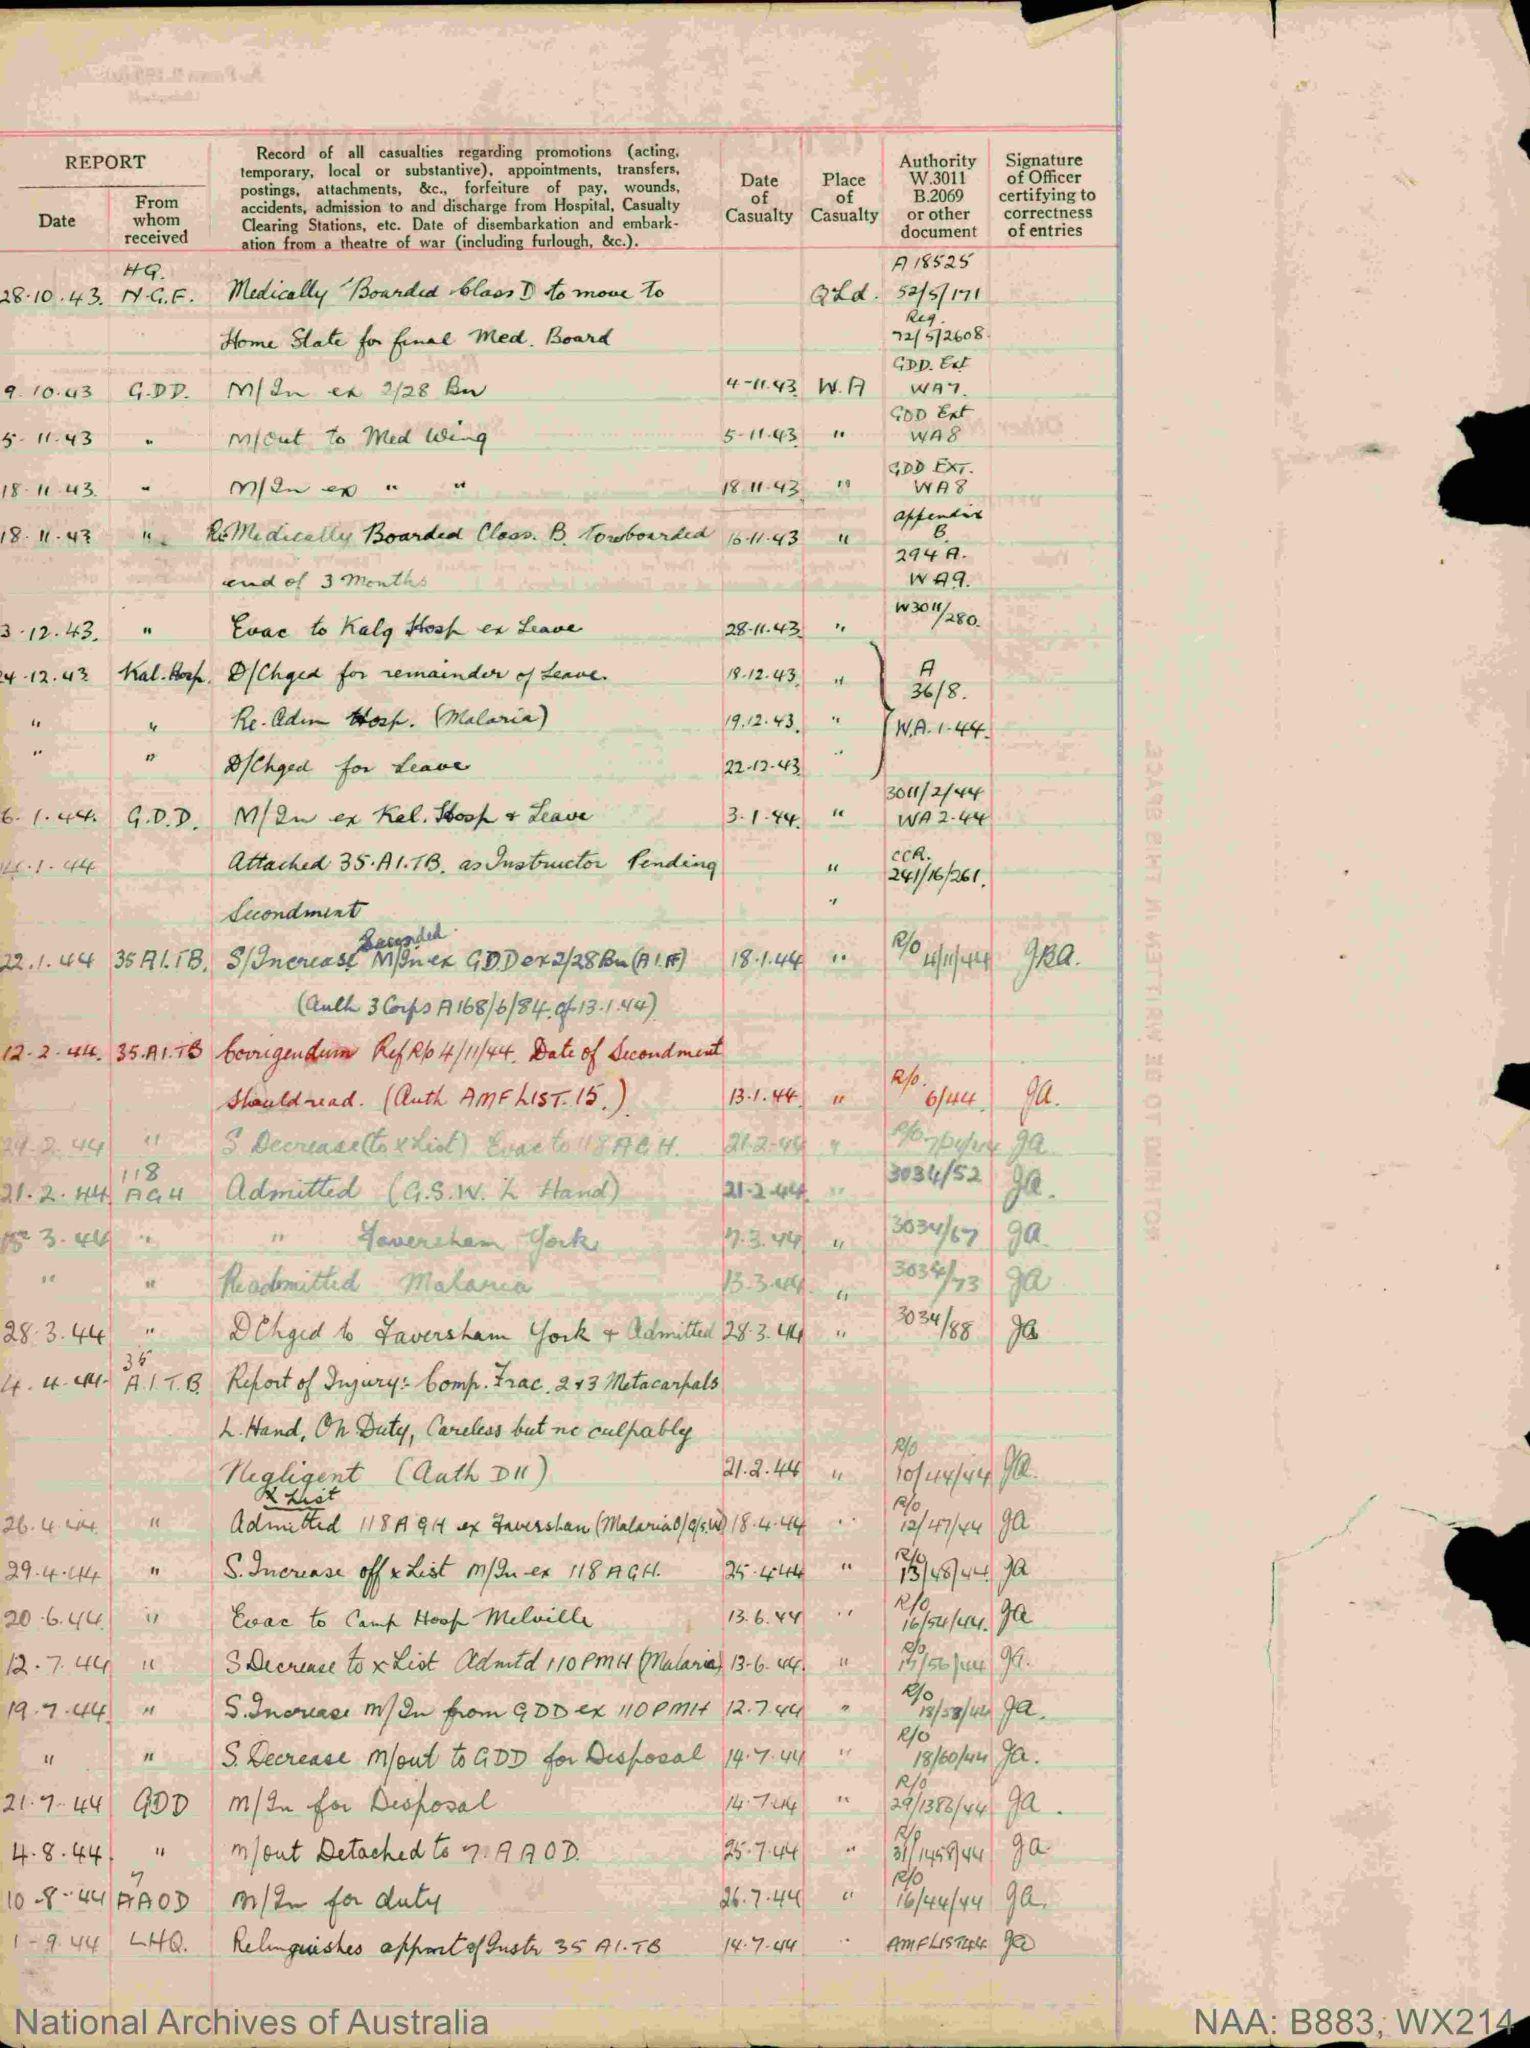 REPORT
Date
From whom received
Record of all casualties regarding promotions (acting,
temporary, local or substantive), appointments, transfers,
postings, attachments, &c., forfeiture of pay, wounds,
accidents, admission to and discharge from Hospital, Casualty
Clearing Stations, etc. Date of disembarkation and embark-
ation from a theatre of war (including furlough, &c.).
Date of Casualty
Place of Casualty
Authority W.3011 B.2069 or other document
Signature of Officer certifying to correctness of entries
HQ. A 18525
28.10.43. N.G.F. Medically Boarded Class D to move to QLd. 52/5/171
Reg.
Home State for final Med. Board 72/5/2608.
GDD. Ext
9.10.43 G.DD. M/In ex 2/28 Bn 4-11.43. W.A WA7.
GDD Ext
5.11.43 " M/out to Med Wing 5-11.43. " WA8
GDD EXT.
18.11.43. " M/In ex " " 18.11.43. " WA8
appendix
18.11.43 " Re Medically Boarded Class. B. to reboarded 16.11.43 " B.
294 A.
end of 3 Months WA9.
3.12.43. " Evac to Kalg Hosp ex Leave 28-11.43. " W3011/280.
24.12.43 Kal. Hosp. D/Chged for remainder of Leave. 18.12.43. " A 36/8.
" " Re-Adm Hosp. (Malaria) 19.12.43. " W.A. 1-44.
" " D/Chged for Leave 22-12-43. "
3011/2/44
6.1.44. G.D.D. M/In ex Kal. Hosp & Leave 3.1.44. " WA 2-44
CCR.
14.1.44 Attached 35.A.I.TB. as Instructor Pending " 241/16/261.
Secondment "
Seconded
22.1.44 35 A.I.TB. S/Increase M/In ex GDD ex 2/28 Bn (A.I.F) 18.1.44 " R/O 4/11/44 JBA.
(Auth 3 Corps A168/6/84. of 13.1.44)
12.2.44. 35.A.I.TB Corrigendum Ref R/o 4/11/44. Date of Secondment
should read. (Auth AMF LIST. 15.) 13.1.44. " R/o. 6/44. ga.
24.2.44 " S Decrease (to x List) Evac to 118 AGH. 21.2.44 " R/O ga
118
21.2.44 AGH Admitted (G.S.W. L Hand) 21.2.44. " 3034/52 ga.
3.44 " " Faversham York 7.3.44 " 3034/67 ga.
" " Readmitted Malaria 13.3.44. " 3034/73 ga
28.3.44 " D Chged to Faversham York & Admitted 28.3.44 " 3034/88 ga
35
4.4.44. A.I.T.B. Report of Injury:- Comp. Frac. 2 & 3 Metacarpals
L. Hand, On Duty, Careless but no culpably
Negligent (Auth D11) 21.2.44 " R/O 10/44/44 ga.
X List
26.4.44. " Admitted 118 AGH ex Faversham (Malaria 18.4.44 " R/O 12/47/44 ga
29.4.44 " S. Increase off x List M/In ex 118 AGH. 25.4.44 " R/O 13/48/44. ga
20.6.44. " Evac to Camp Hosp Melville 13.6.44 " R/O 16/54/44. ga
12.7.44 " S Decrease to x List Admtd 110 PMH (Malaria) 13.6.44. " R/O 17/56/44 ga.
19.7.44. " S. Increase M/In from GDD ex 110 PMH 12.7.44 " R/O 18/58/44 ga.
" " S. Decrease M/out to GDD for Disposal 14.7.44 " R/O 18/60/44 ga.
21.7.44 GDD M/In for Disposal 14.7.44 " R/O 29/1386/44 ga.
4.8.44. " M/out Detached to 7. AAOD. 25.7.44 " R/O 31/1458/44 ga
7
10-8-44 AAOD M/In for duty 26.7.44 " R/O 16/44/44 ga.
1-9.44 LHQ. Relinquishes appmt of Instr 35 A.I.TB 14.7.44 " AMF LIST44 ga
NOTHING TO BE WRITTEN IN THIS SPACE
National Archives of Australia
NAA: B883, WX214